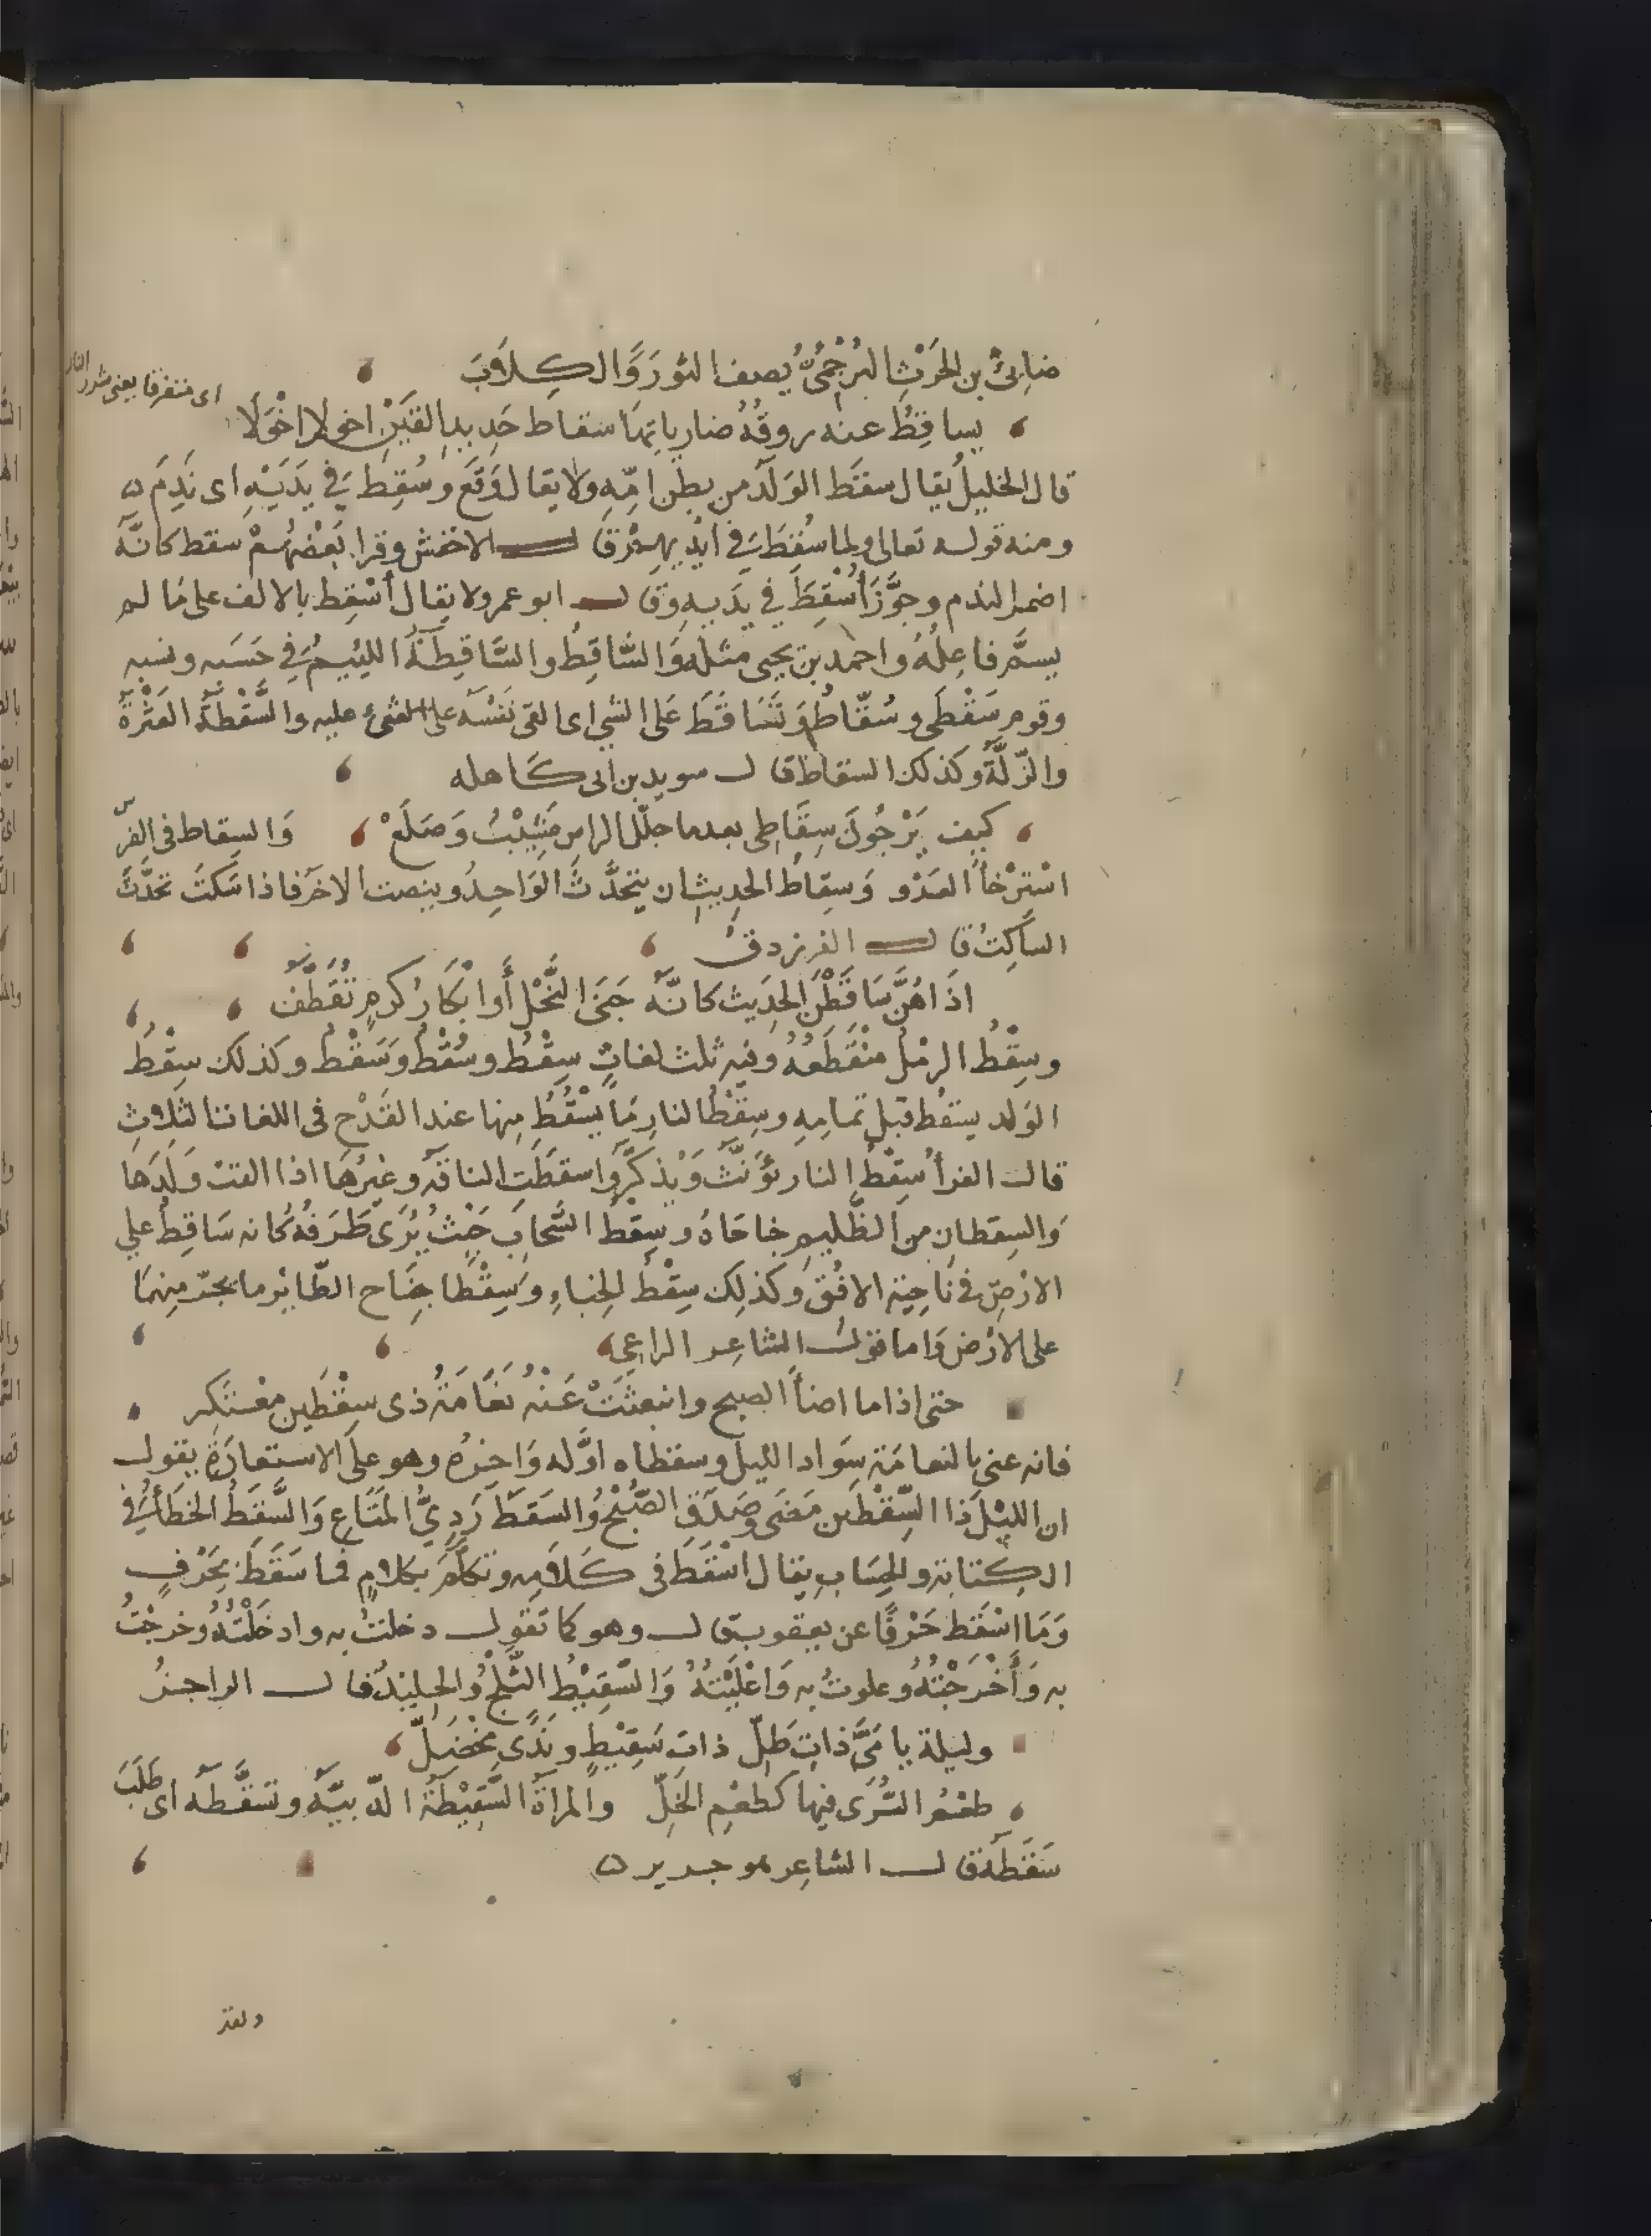 ضابئُ بن الحَرْثِ البُرْجُمِىُّ يُصف الثورَ وَالكِلاَبَ
اى متفرقا يعنى شرر النار
يساقِطُ عنه روقُهُ ضارياتِهَا سقاط حَدِيدِ القَيْنِ اخولا اخْوَلَا
قال الخليلُ يُقال سقَط الوَلَدُ من بطن امِّهِ وَلا يقال وَقَع وسُقِطَ فِي يَدَيْهِ اى نَدِمَ ه
ومنه قوله تعالى ولما سُقِطَ فِي ايْدِيهِمْ قال الاخفش وقرا بَعْضُهُمْ سقط كانَّهُ
اضمر الندم وجوَّزَ أُسْقِطَ فِي يَدَيهِ وقال ابو عمرو لا يقال أُسْقِط بالالف على مَا لم
يسمَّ فاعِلُهُ واحمد بن يحيى مثله وَالسَّاقِطُ والسَّاقِطَةُ اللئيمُ فِي حَسَبه ونسبه
وقوم سَقْطَى وسُقّاطٌ وَتَسَاقَطَ عَلى الشىِ اى القى نَفْسَه على الشىء عليه والسَّقْطَةُ العَثْرَةُ
والزَّلَّةُ وكذلك السقاط قال سويد بن ابى كَاهله
كيف يَرْجُونَ سِقَاطِى بعدما جلّل الراس مَشِيْبٌ وَصَلَعْ وَالسِقاط فى الفرس
اسْتِرْخاُ العَدْو وَسِقاطُ الحديثِ ان يتحدَّثَ الوَاحِدُ وينصت الاخَر فاذا سَكتَ تحدَّثَ
السَاكِتُ قال الفرزدق
اذَا هُنَّ سَاقَطْنَ الحَدِيث كانَّهُ جَنَى النَّحْلِ أَوْ ابْكَارُ كرمٍ تُقَطَّفُ
وسِقْطُ الرمْلِ منْقَطَعُهُ وفيه ثلث لغاتٍ سِقْطٌ وسُقْطٌ وَسَقْطٌ وكذلك سِقْطُ
الوَلد يسقُط قبْل تمامِهِ وسِقْطُ النارِ مَا يَسْقُطُ مِنها عند القَدْحِ فى اللغات الثلاثِ
قال الفرأ سِقْطُ النار يُؤَنَّثُ وَيُذَكَّرُ وَاسقطَتِ الناقة وغيْرُهَا اذا القتْ وَلَدَهَا
وَالسِقطانِ من الظَّلِيمِ جناحَاهُ وسِقْطُ السَّحَابِ حَيْثُ يُرَى طَرَفُهُ كانه سَاقِطٌ على
الارْضِ فى نَاحِيَة الافُقِ وكذلِك سِقْطُ الخِباءِ وَسِقْطَا جَنَاح الطّائِرْ ما يجرّ مِنهُمَا
على الارْض وَاما قوْلُ الشاعِر الراعى
حتى اذا ما اضاَُ الصبح وانبعثَتْ عَنْهُ نَعَامَةُ ذى سِقْطَينِ معْتَكِر
فانه عنى بالنعامَة سَوَاد الليل وسقطاه اوَّله وَاخِرُه وهو على الاستعارَةِ يقول
ان الليْلَ ذا السِّقْطَين مَضَى وَصَدَقَ الصُبْحُ وَالسَقَطُ رَدِىُّ المَتَاعِ وَالسَّقَطُ الخَطَأُ فِي
الكِتابة والحِسَابِ يقال اسْقَطَ فى كَلامِه وَتكلَّمَ بكلامٍ فما سَقَطَ بِحَرْفٍ
وَمَا اسْقَط حَرْفًا عن يعقوب قال وهو كما تَقول دخلتُ به وادخَلْتُهُ وخرجْتُ
به وَأَخْرَجْتُهُ وعلوتُ به وَاعْلَيْتُهُ وَالسَّقِيْطُ الثَّلْجُ وَالجليْدُ قال الراجزُ
وليلة يا مَىَّ ذاتِ طَلّ ذاتِ سَقِيْطٍ ونَدًى مخْضَلّ
طعْمُ السُّرَى فيها كطعْمِ الخَلّ والمرأةُ السَّقِيْطَةُ الدّنيَّة وتسَقَّطَه اى طَلَبَ
سَقَطَهُ قال الشاعِر هو جرير ه
ولقد